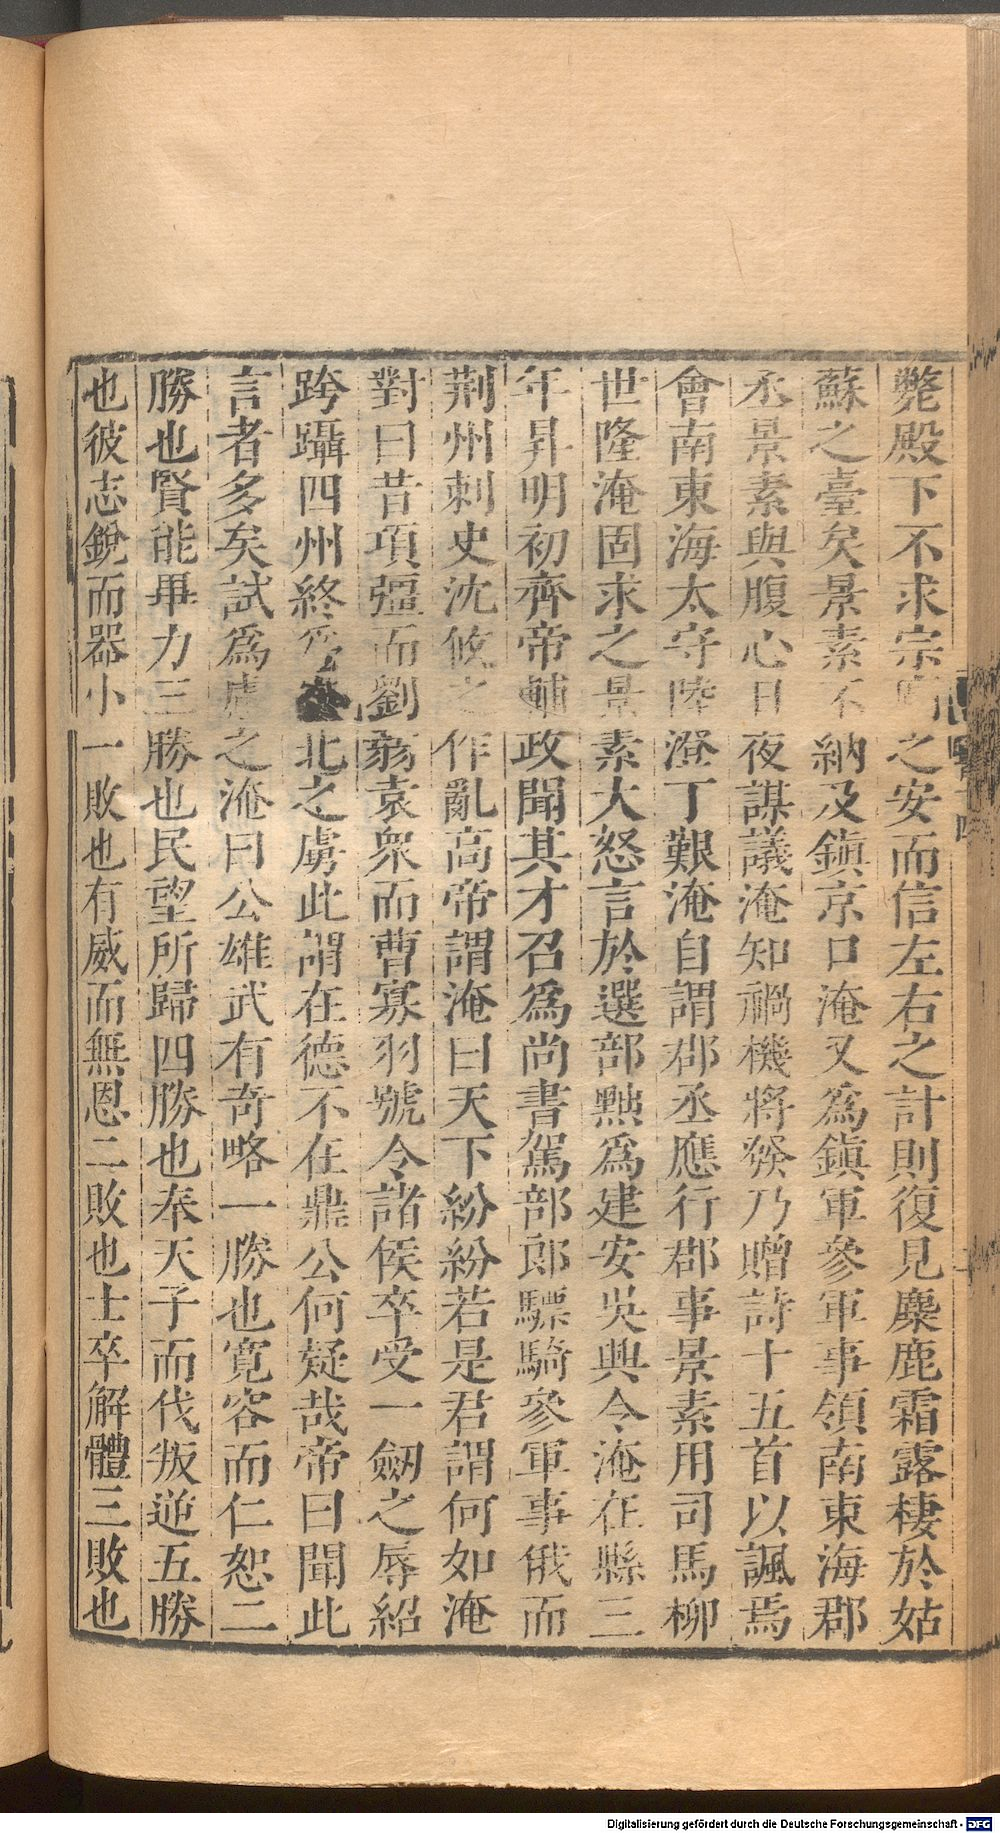 斃殿下不求宗廟之安而信左右之計則復見麋鹿霜露棲於姑
蘇之臺矣景素不納及鎭京口淹又爲鎭軍參軍事領南東海郡
丞景素與腹心日夜謀議淹知禍機將發乃贈詩十五首以諷焉
會南東海太守陸澄丁艱淹自謂郡丞應行郡事景素用司馬柳
世隆淹固求之景素大怒言於選部黜爲建安吳興令淹在縣三
年昇明初齊帝輔政聞其才召爲尚書駕部郎驃騎參軍事俄而
荆州刺史沈攸之作亂高帝謂淹曰天下紛紛若是君謂何如淹
對曰昔項彊而劉弱袁衆而曹寡羽號令諸侯卒受一劒之辱紹
跨躡四州終爲北之虜此謂在德不在鼎公何疑哉帝曰聞此
言者多矣試爲慮之淹曰公雄武有奇略一勝也寬容而仁恕二
勝也賢能畢力三勝也民望所歸四勝也奉天子而伐叛逆五勝
也彼志銳而器小一敗也有威而無恩二敗也士卒解體三敗也
Digitalisierung gefördert durch die Deutsche Forschungsgemeinschaft - DFG